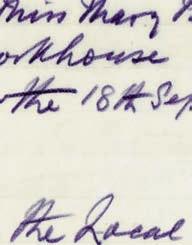 Miss Mary
orkhouse
the 18th Sep
the Local